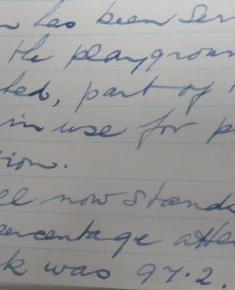 has been ser
the playgroun
ted, part of
in use for p
tion.
now stands
ercentage atte
k was 97.2.